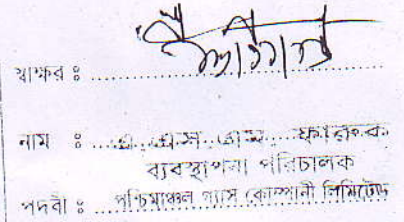 স্বাক্ষর ঃ
নাম ঃ এ. এস. এম. ফারুক
ব্যবস্থাপনা পরিচালক
পদবী ঃ পশ্চিমাঞ্চল গ্যাস কোম্পানী লিমিটেড